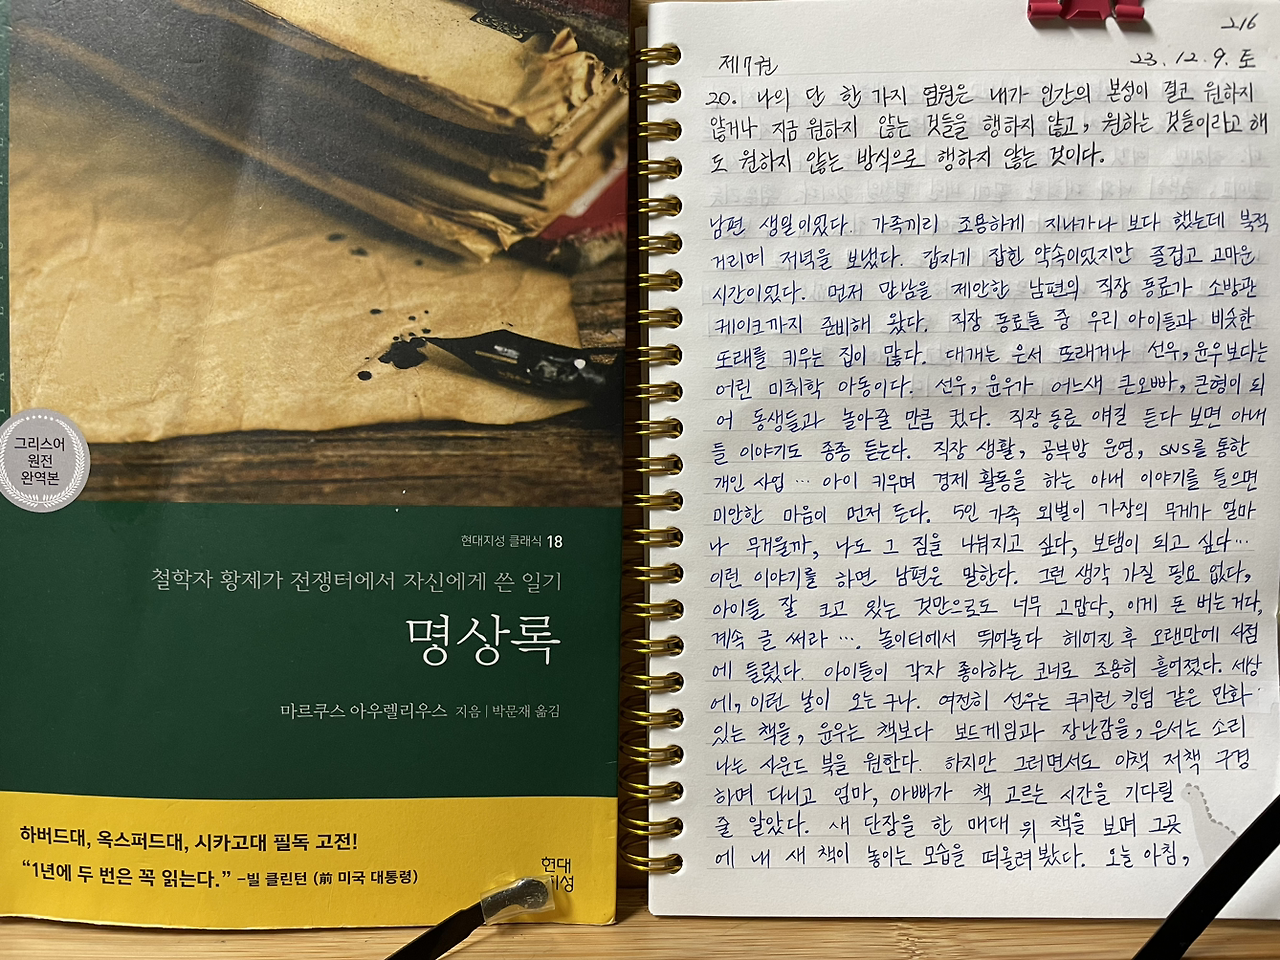 그리스어
원전
완역본
현대지성 클래식 18
철학자 황제가 전쟁터에서 자신에게 쓴 일기
명상록
마르쿠스 아우렐리우스 지음 | 박문재 옮김
하버드대, 옥스퍼드대, 시카고대 필독 고전!
“1년에 두 번은 꼭 읽는다.” -빌 클린턴 (前 미국 대통령)
현대
지성
216
제7권 23. 12. 9. 토
20. 나의 단 한 가지 염원은 내가 인간의 본성이 결코 원하지
않거나 지금 원하지 않는 것들을 행하지 않고, 원하는 것들이라고 해
도 원하지 않는 방식으로 행하지 않는 것이다.
남편 생일이었다. 가족끼리 조용하게 지나가나 보다 했는데 북적
거리며 저녁을 보냈다. 갑자기 잡힌 약속이었지만 즐겁고 고마운
시간이었다. 먼저 만남을 제안한 남편의 직장 동료가 소방관
케이크까지 준비해 왔다. 직장 동료들 중 우리 아이들과 비슷한
또래를 키우는 집이 많다. 대개는 은서 또래거나 선우, 윤우보다는
어린 미취학 아동이다. 선우, 윤우가 어느새 큰오빠, 큰형이 되
어 동생들과 놀아줄 만큼 컸다. 직장 동료 얘길 듣다 보면 아내
들 이야기도 종종 듣는다. 직장 생활, 공부방 운영, SNS를 통한
개인 사업 ... 아이 키우며 경제 활동을 하는 아내 이야기를 들으면
미안한 마음이 먼저 든다. 5인 가족 외벌이 가장의 무게가 얼마
나 무거울까, 나도 그 짐을 나눠지고 싶다, 보탬이 되고 싶다...
이런 이야기를 하면 남편은 말한다. 그런 생각 가질 필요 없다,
아이들 잘 크고 있는 것만으로도 너무 고맙다, 이게 돈 버는거다,
계속 글 써라 .... 놀이터에서 뛰어놀다 헤어진 후 오랜만에 서점
에 들렀다. 아이들이 각자 좋아하는 코너로 조용히 흩어졌다. 세상
에, 이런 날이 오는구나. 여전히 선우는 쿠키런 킹덤 같은 만화
있는 책을, 윤우는 책보다 보드게임과 장난감을, 은서는 소리
나는 사운드 북을 원한다. 하지만 그러면서도 이책 저책 구경
하며 다니고 엄마, 아빠가 책 고르는 시간을 기다릴
줄 알았다. 새 단장을 한 매대 위 책을 보며 그곳
에 내 새 책이 놓이는 모습을 떠올려 봤다. 오늘 아침,